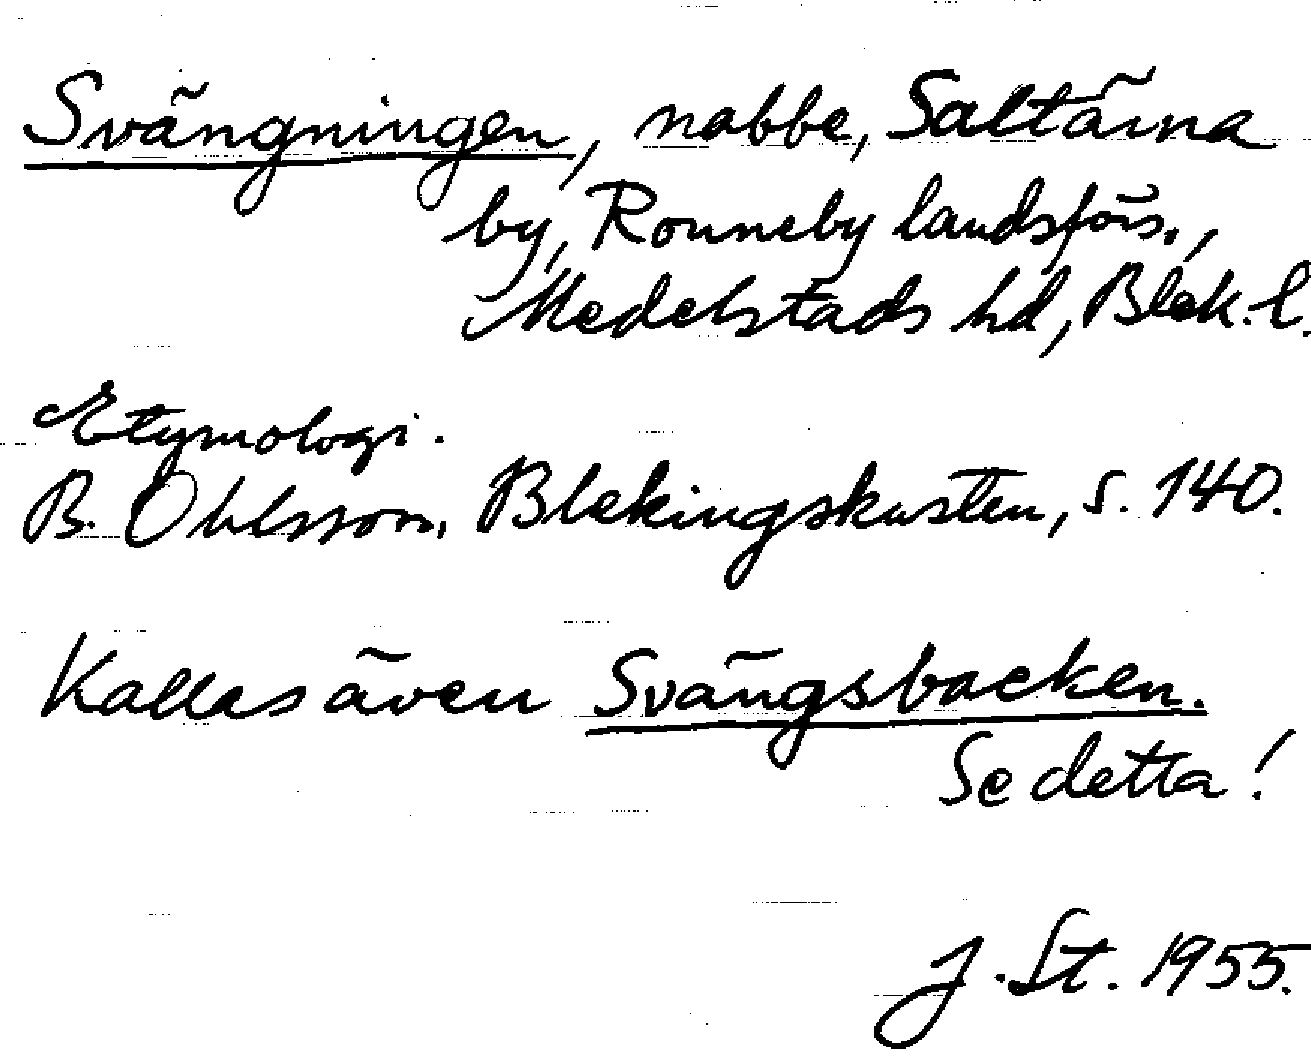 Svängningen, nabbe, Saltärna
by, Ronneby landsförs.,
Medelstads hd, Blek. l.
Etymologi.
B. Ohlsson, Blekingskusten, s. 140.
Kallas även Svängsbacken.
Se detta!
J. St. 1955.